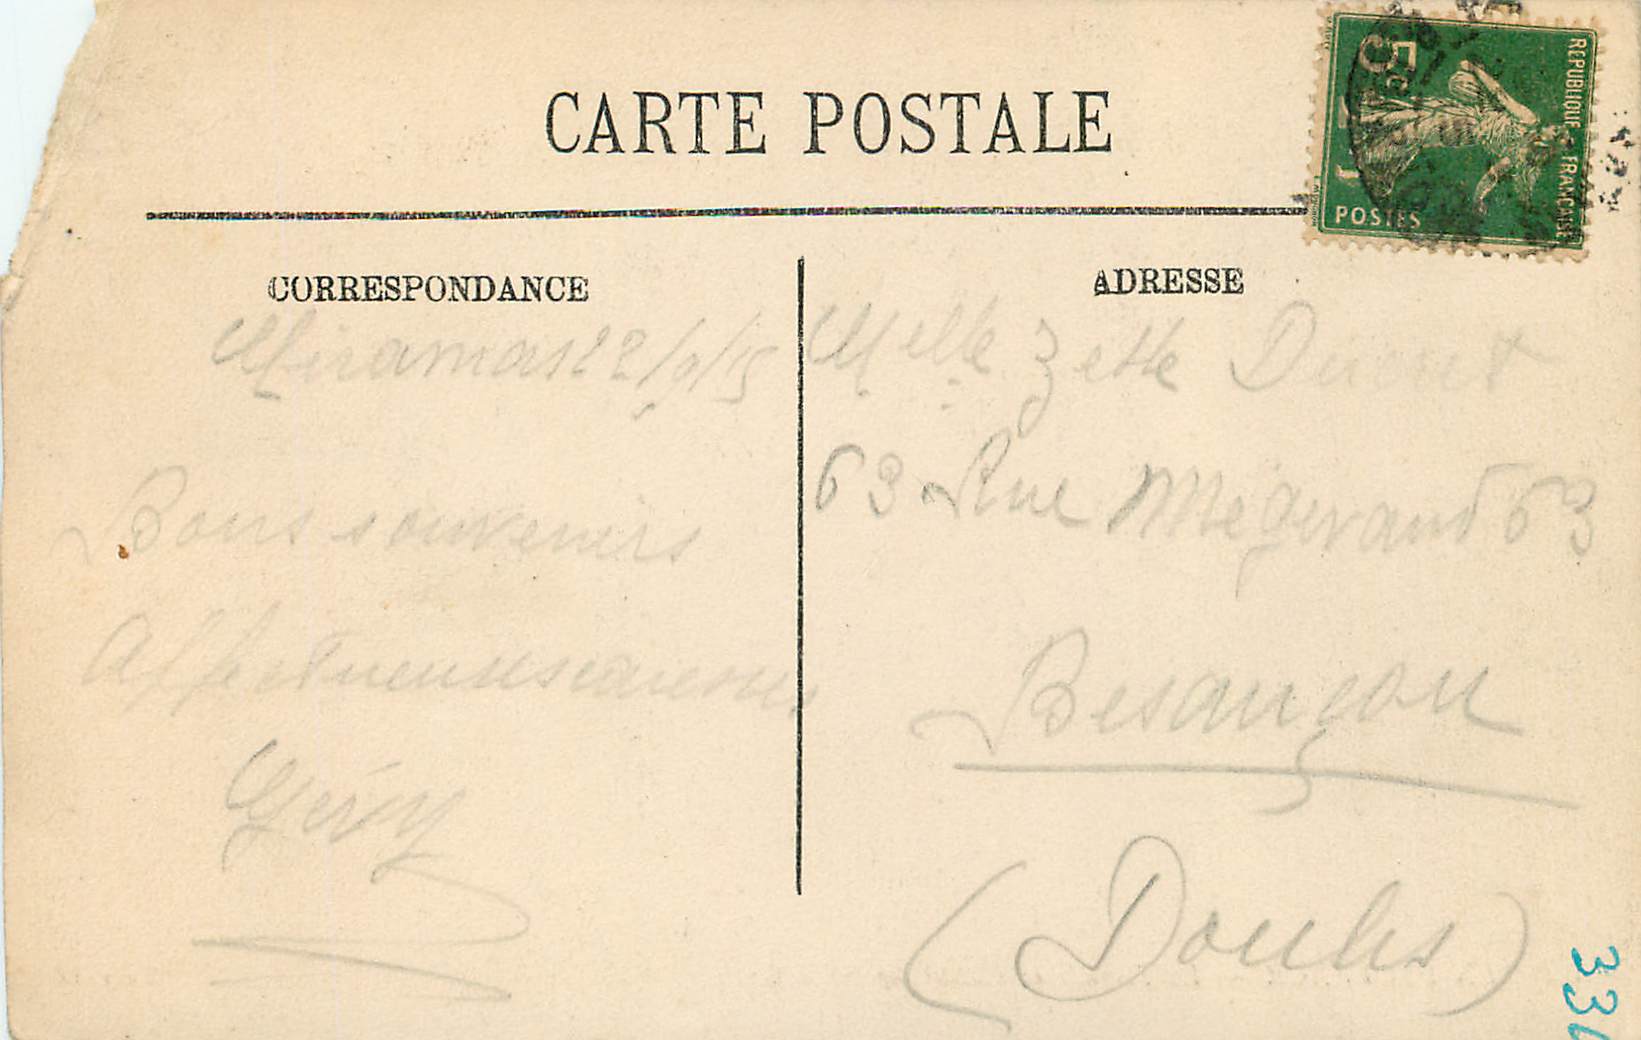 CARTE POSTALE
REPUBLIQUE FRANCAISE
5c
POSTES
CORRESPONDANCE
Miramas 22/9/15
Bons souvenirs
Affectueuses caresses
Géry
ADRESSE
Melle Zette Ducret
63 Rue Mégevand 63
Besançon
(Doubs)